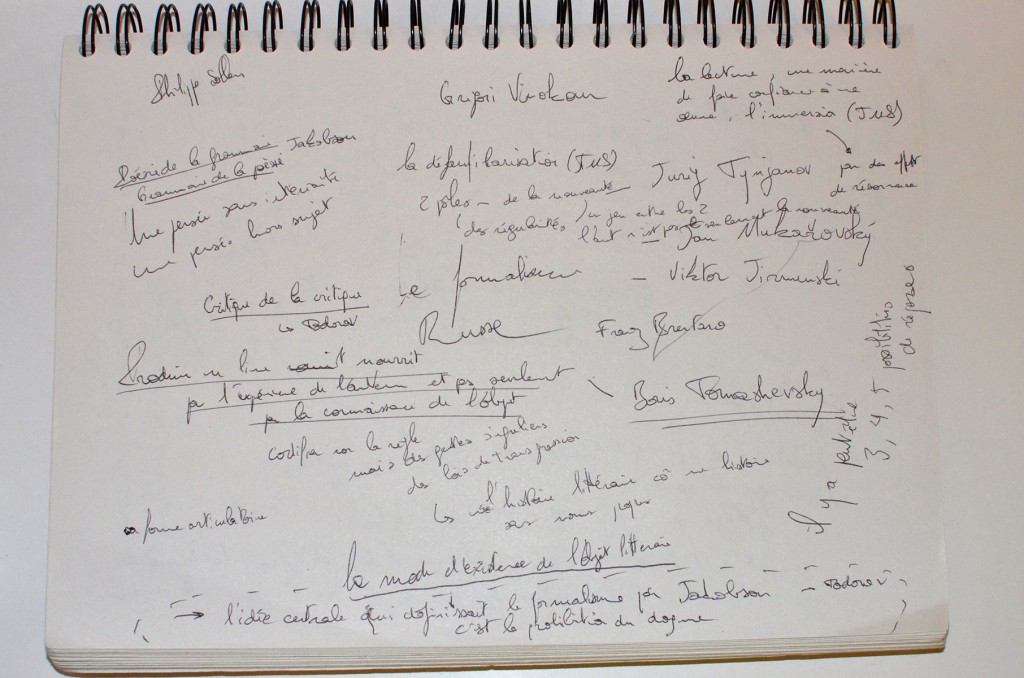 Philippe
Grigori Vinokour
La lecture, une manière
de faire confiance à une
œuvre, l'immersion (JMS)
par des effets
de résonnance
Poésie de la grammaire Jakobson
Grammaire de la poésie
Une pensée sans
une pensée hors sujet
la défamiliarisation (JMS)
2 pôles – de la nouveauté
des régularités, un jeu entre les 2
l'art n'est pas seulement la nouveauté
Jurij Tynjanov
Jan Mukařovský
Le formalisme
Russe
– Viktor Jirmunski
Franz Brentano
Critique de la critique
↳ Todorov
Boris Tomashevsky
Produire un livre nourrit
par l'expérience de l'auteur et pas seulement
par la connaissance de l'objet
codifier la règle
mais des gestes singuliers
des lois de transgression
↳ l'histoire littéraire cô une histoire
sans noms propres
forme articulatoire
Il y a peut être
3, 4, 5 possibilités
de réponses
Le mode d'existence de l'objet littéraire
→ l'idée centrale qui définissait le formalisme par Jakobson – Todorov
c'est la du dogme